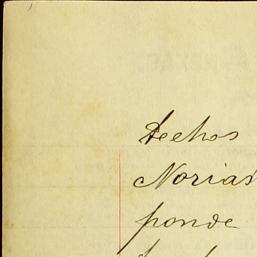 Hechos
Norias
ponde